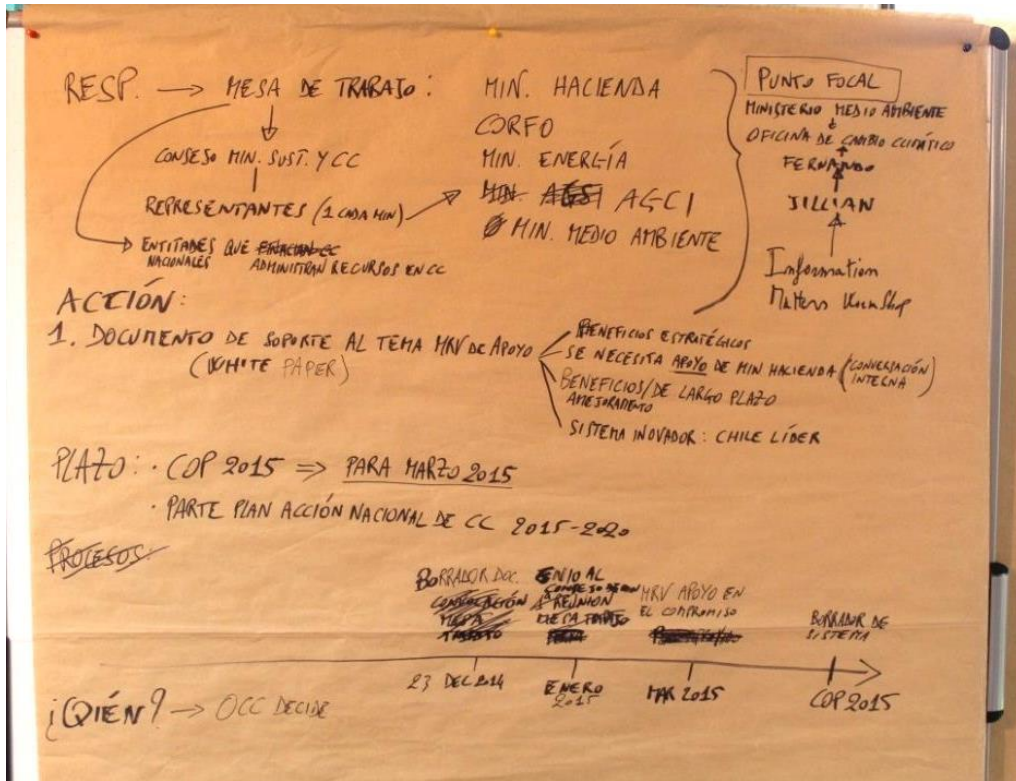 RESP. → MESA DE TRABAJO:
CONSEJO MIN. SUST. Y CC
REPRESENTANTES (1 CADA MIN)
ENTITADES QUE
NACIONALES ADMINISTRAN RECURSOS EN CC
MIN. HACIENDA
CORFO
MIN. ENERGÍA
MIN. AGCI
MIN. MEDIO AMBIENTE
PUNTO FOCAL
MINISTERIO MEDIO AMBIENTE
OFICINA DE CAMBIO CLIMÁTICO
FERNANDO
JILLIAN
Information
Matters
ACCIÓN:
1. DOCUMENTO DE SOPORTE AL TEMA MRV DE APOYO
(WHITE PAPER)
BENEFICIOS ESTRATÉGICOS
SE NECESITA APOYO DE MIN HACIENDA (CONVERSACIÓN
INTERNA)
BENEFICIOS/DE LARGO PLAZO
AMEJORAMENTO
SISTEMA INOVADOR: CHILE LÍDER
PLAZO: · COP 2015 ⇒ PARA MARZO 2015
· PARTE PLAN ACCIÓN NACIONAL DE CC 2015-2020
PROCESOS:
BORRADOR DOC.
CONVOCACIÓN
MESA
TRABAJO
ENVIO AL
CONSEJO
REUNION
MESA TRABAJO
MRV APOYO EN
EL COMPROMISO
BORRADOR DE
SISTEMA
23 DEC 2014
ENERO
2015
MAR 2015
COP 2015
¿QIÉN? → OCC DECIDE